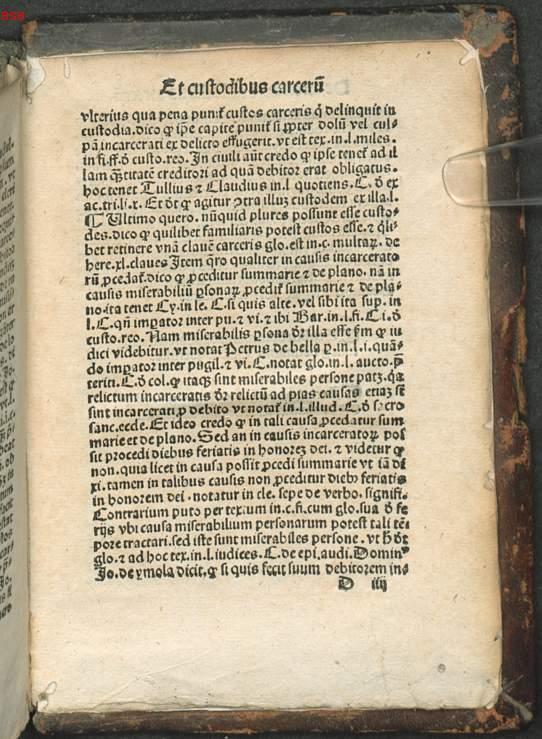 858
Et custodibus carcerū
vlterius qua pena punit᷑ custos carceris q̄ delinquit in
custodia. dico ꝙ ip̄e capite punit᷑ si ꝓpter dolū vel cul-
pā incarcerati ex delicto effugerit. vt est tex. in. l. miles.
in fi. ff. ď custo. reo. In ciuili aūt credo ꝙ ipse tenet᷑ ad il
lam q̄titatē creditori ad quā debitor erat obligatus.
hoc tenet Tullius ⁊ Claudius in. l quotiens. C. ď ex
ac. tri. li. x. Et ďt ꝙ agitur ꝯtra illuꝫ custodem ex illa. l.
¶ Ultimo quero. nūquid plures possunt esse custo-
des. dico ꝙ quilibet familiaris potest custos esse. ⁊ q̄li-
bet retinere vnā clauē carceris glo. est in. c. multaꝝ. de
here. xl. claues Item q̄ro qualiter in causis incarcerato
rū ꝓcedat᷑. dico ꝙ ꝓceditur summarie ⁊ de plano. nā in
causis miserabiliū ꝑsonaꝝ ꝓcedit᷑ summarie ⁊ de pla-
no. ita tenet Cy. in le. C. si quis alte. vel sibi ita sup. in
l. C. qn̄ imꝑator inter pu. ⁊ vi. ⁊ ibi Bar. in. l. fi. C. i. ď
custo. reo. Nam miserabilis ꝑsona ďr illa esse ẜm ꝙ iu
dici videbitur. vt notat Petrus de bella ꝑ. in. l. i. quā-
do imꝑator inter pugil. ⁊ vi. C. notat glo. in. l. aucto. p̄
terin. C. ď col. ꝙ itaqꝫ sint miserabiles persone patꝫ. qꝛ
relictum incarceratis ďr relictū ad pias causas etiaꝫ si
sint incarcerati ꝓ debito vt notat᷑ in. l. illud. C. ď sacro
sanc. ecde. Et ideo credo ꝙ in tali causa ꝓcedatur sum
marie et de plano. Sed an in causis incarceratoꝝ pos
sit procedi diebus feriatis in honoreꝫ dei. ⁊ videtur ꝙ
non. quia licet in causa possit ꝓcedi summarie vt iā di
xi. tamen in talibus causis non ꝓceditur dieb⁹ feriatis
in honorem dei. notatur in cle. sepe de verbo. signifi.
Contrarium puto per textum in. c. fi. cum glo. sua ď fe
rijs vbi causa miserabilium personarum potest tali tē-
pore tractari. sed iste sunt miserabiles persone. vt h̄ďt
glo. ⁊ ad hoc tex. in. l. iudices. C. de epi. audi. Domin⁹
Jo. de ymola dicit. ꝙ si quis fecit suum debitorem in-
D iiij